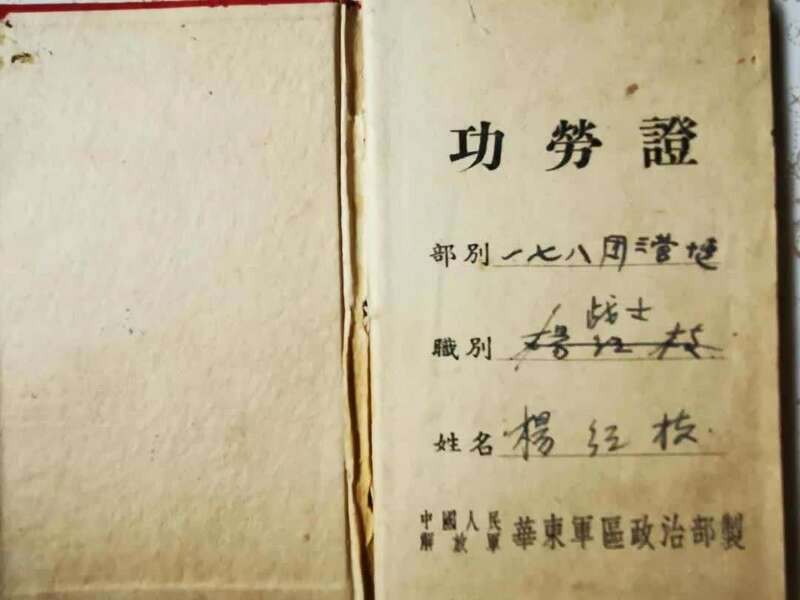 功勞證
部別 一七八团三营
職別 战士 楊红枝
姓名 楊红枝
中國人民解放軍 華東軍區政治部製